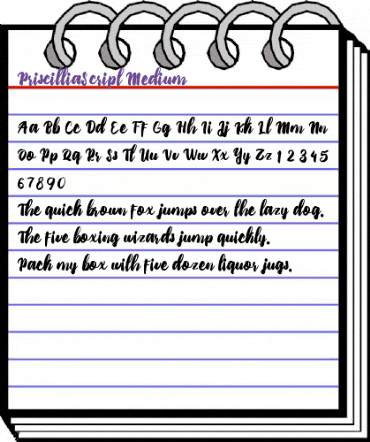 PriscilliaScript Medium
Aa Bb Cc Dd Ee Ff Gg Hh Ii Jj Kk Ll Mm Nn
Oo Pp Qq Rr Ss Tt Uu Vv Ww Xx Yy Zz 1 2 3 4 5
6 7 8 9 0
The quick brown fox jumps over the lazy dog.
The five boxing wizards jump quickly.
Pack my box with five dozen liquor jugs.